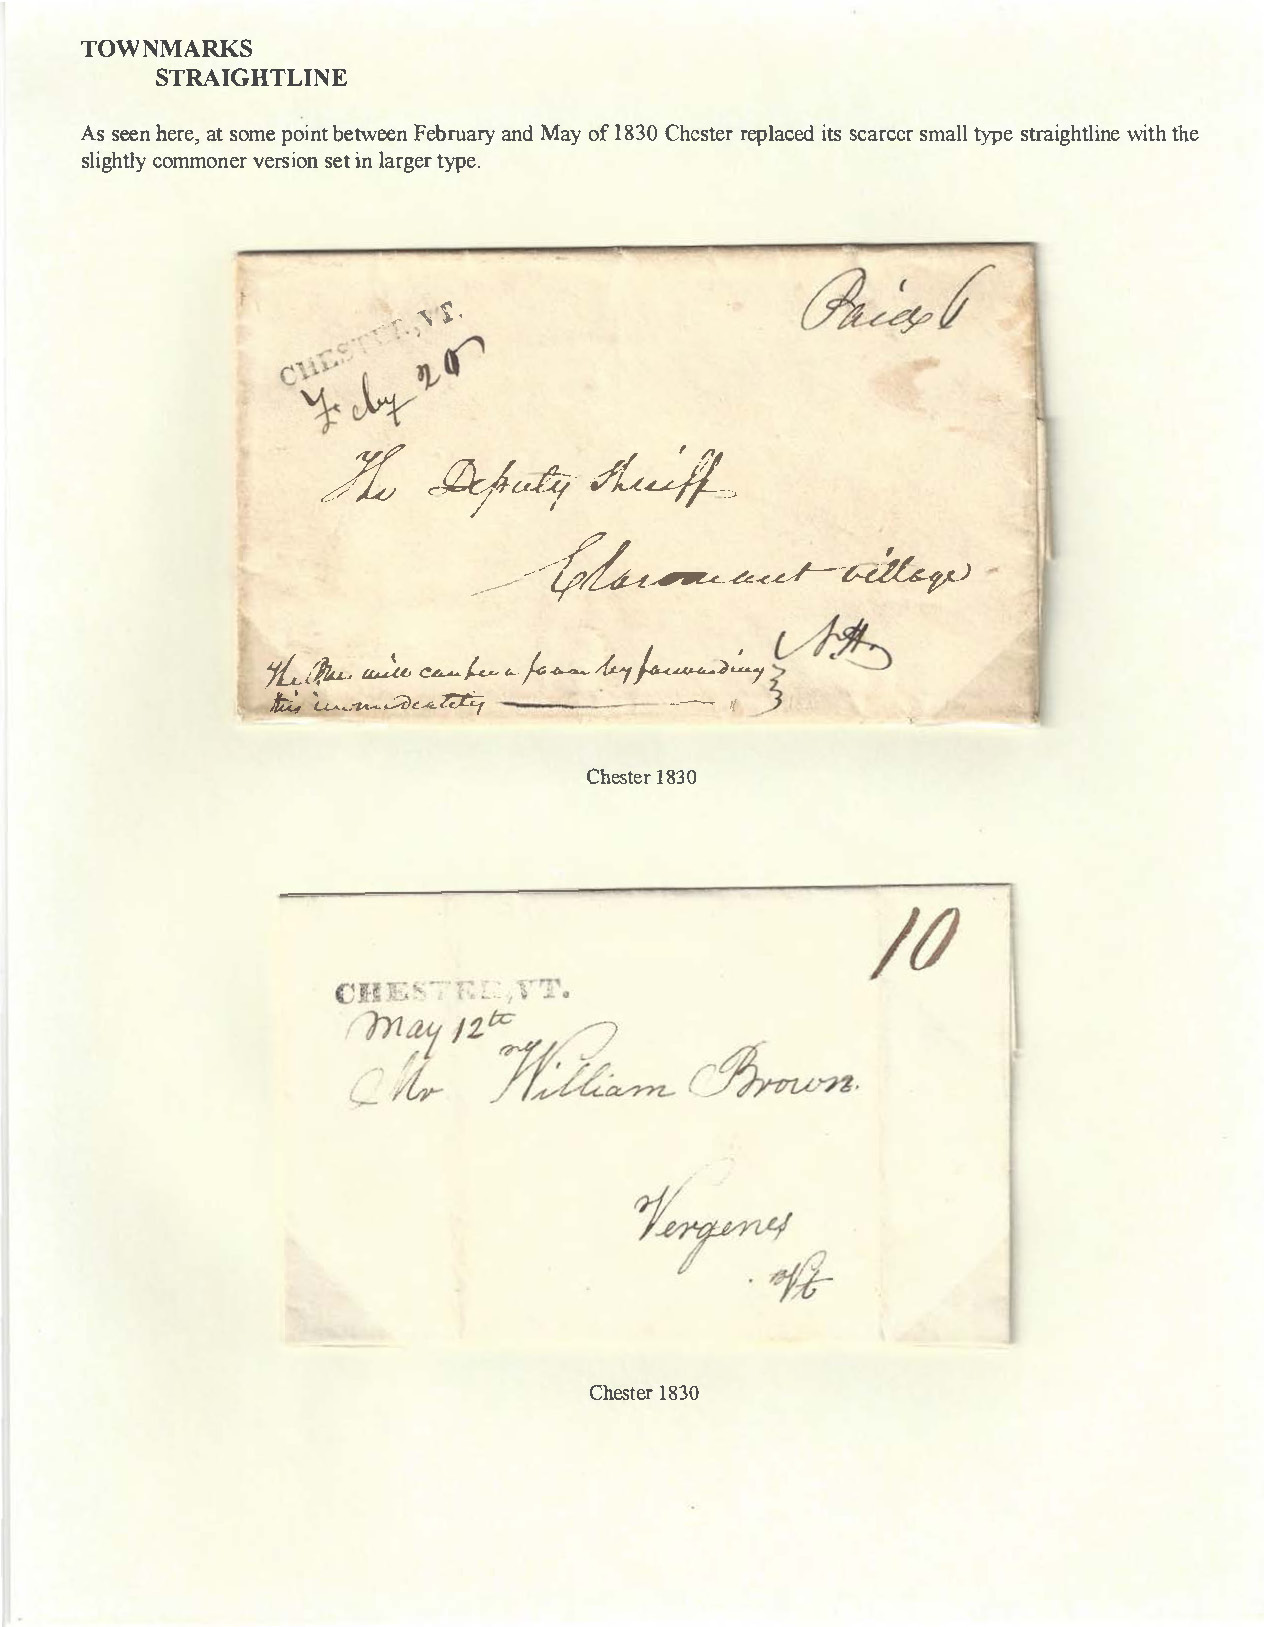 TOWNMARKS
STRAIGHTLINE
As seen here, at some point between February and May of 1830 Chester replaced its scarcer small type straightline with the
slightly commoner version set in larger type.
CHESTER, VT.
Feby 20
Paid 6
The Deputy Sheriff
Claremont village
N.H.
The will a favor by forwarding
this immediately
Chester 1830
10
CHESTER, VT.
May 12th
Mr William Brown.
Vergenes
Vt
Chester 1830